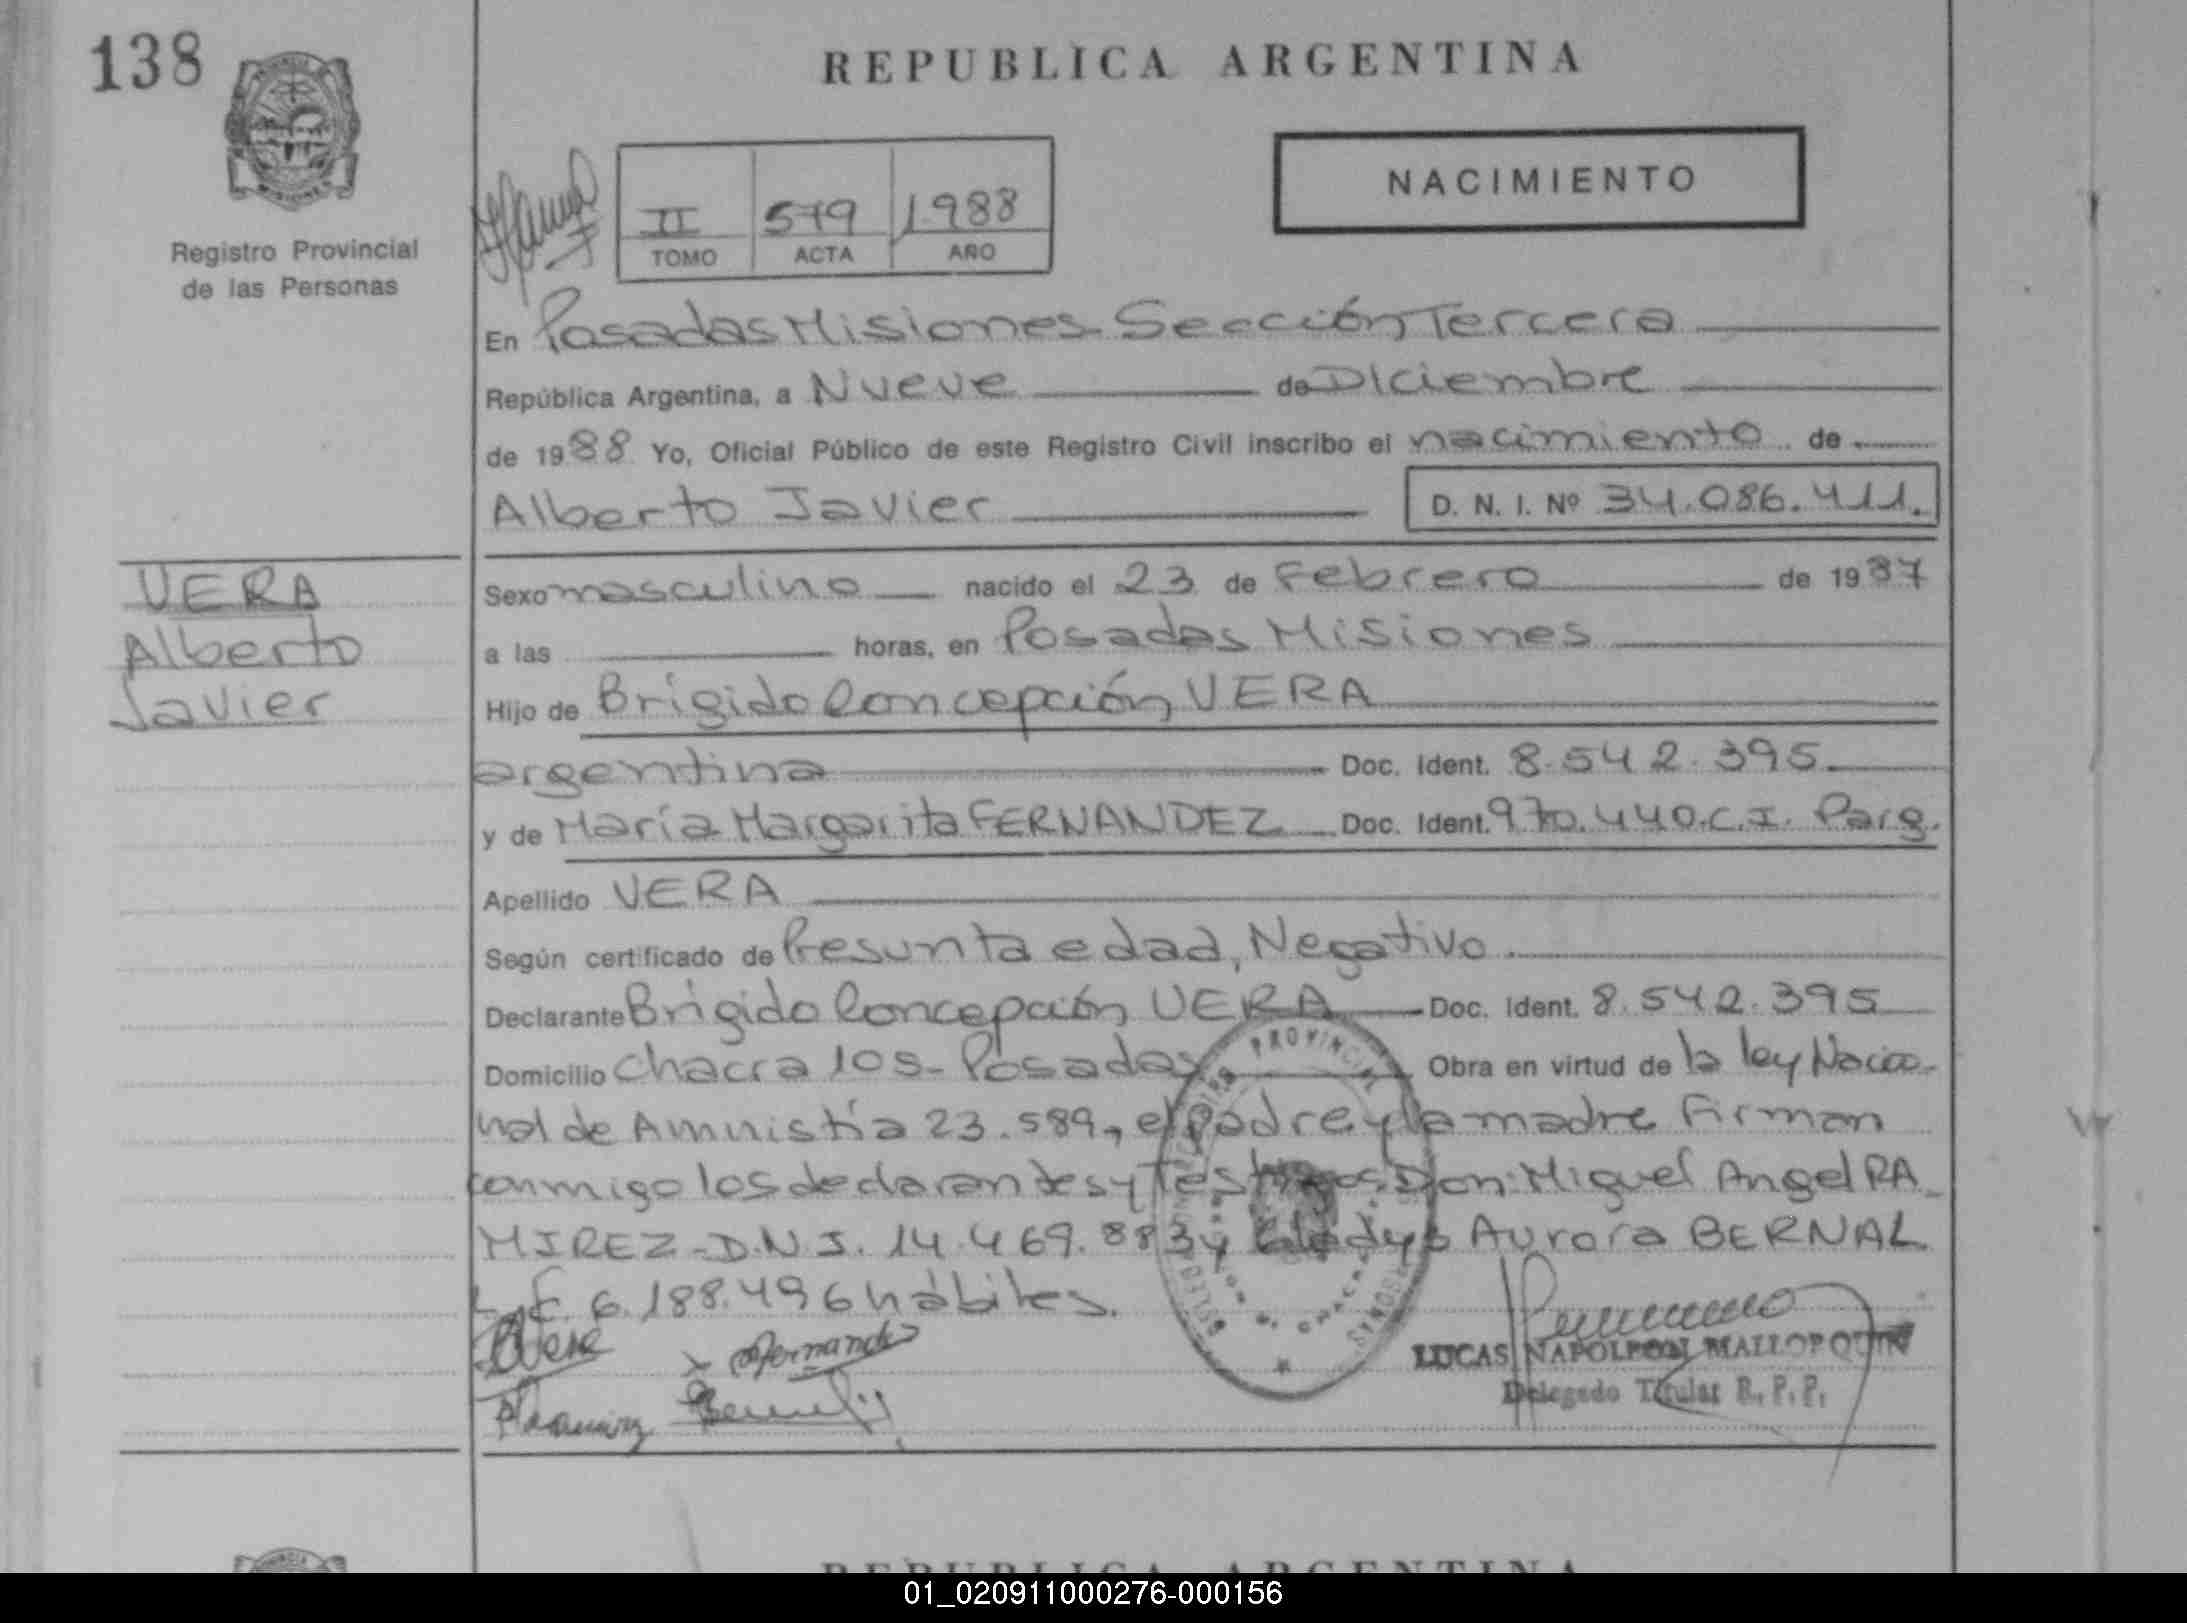 138
REPUBLICA ARGENTINA
NACIMIENTO
II 579 1988
TOMO ACTA AÑO
Registro Provincial
de las Personas
En Posadas Misiones Sección Tercera
República Argentina, a Nueve de Diciembre
de 1988 Yo, Oficial Público de este Registro Civil inscribo el nacimiento de
Alberto Javier D. N. I. Nº 34.086.411.
VERA
Alberto
Javier
Sexo masculino nacido el 23 de Febrero de 1987
a las horas, en Posadas Misiones
Hijo de Brígido Concepción VERA
argentina Doc. Ident. 8.542.395
y de María Margarita FERNANDEZ Doc. Ident. 970.440.C.I. Parg.
Apellido VERA
Según certificado de Presunta edad, Negativo
Declarante Brígido Concepción VERA Doc. Ident. 8.542.395
Domicilio Chacra 105- Posadas Obra en virtud de la ley Nacio-
nal de Amnistía 23.589, el padre y la madre Firman
conmigo los declarantes y Testigos Don: Miguel Angel RA-
MIREZ-D.N.I. 14.469.883 y Gladys Aurora BERNAL
L.C. 6.188.496 hábiles.
PROVINCIAL
LUCAS NAPOLEON MALLORQUIN
Delegado Titular R.P.P.
REPUBLICA ARGENTINA
01_020911000276-000156